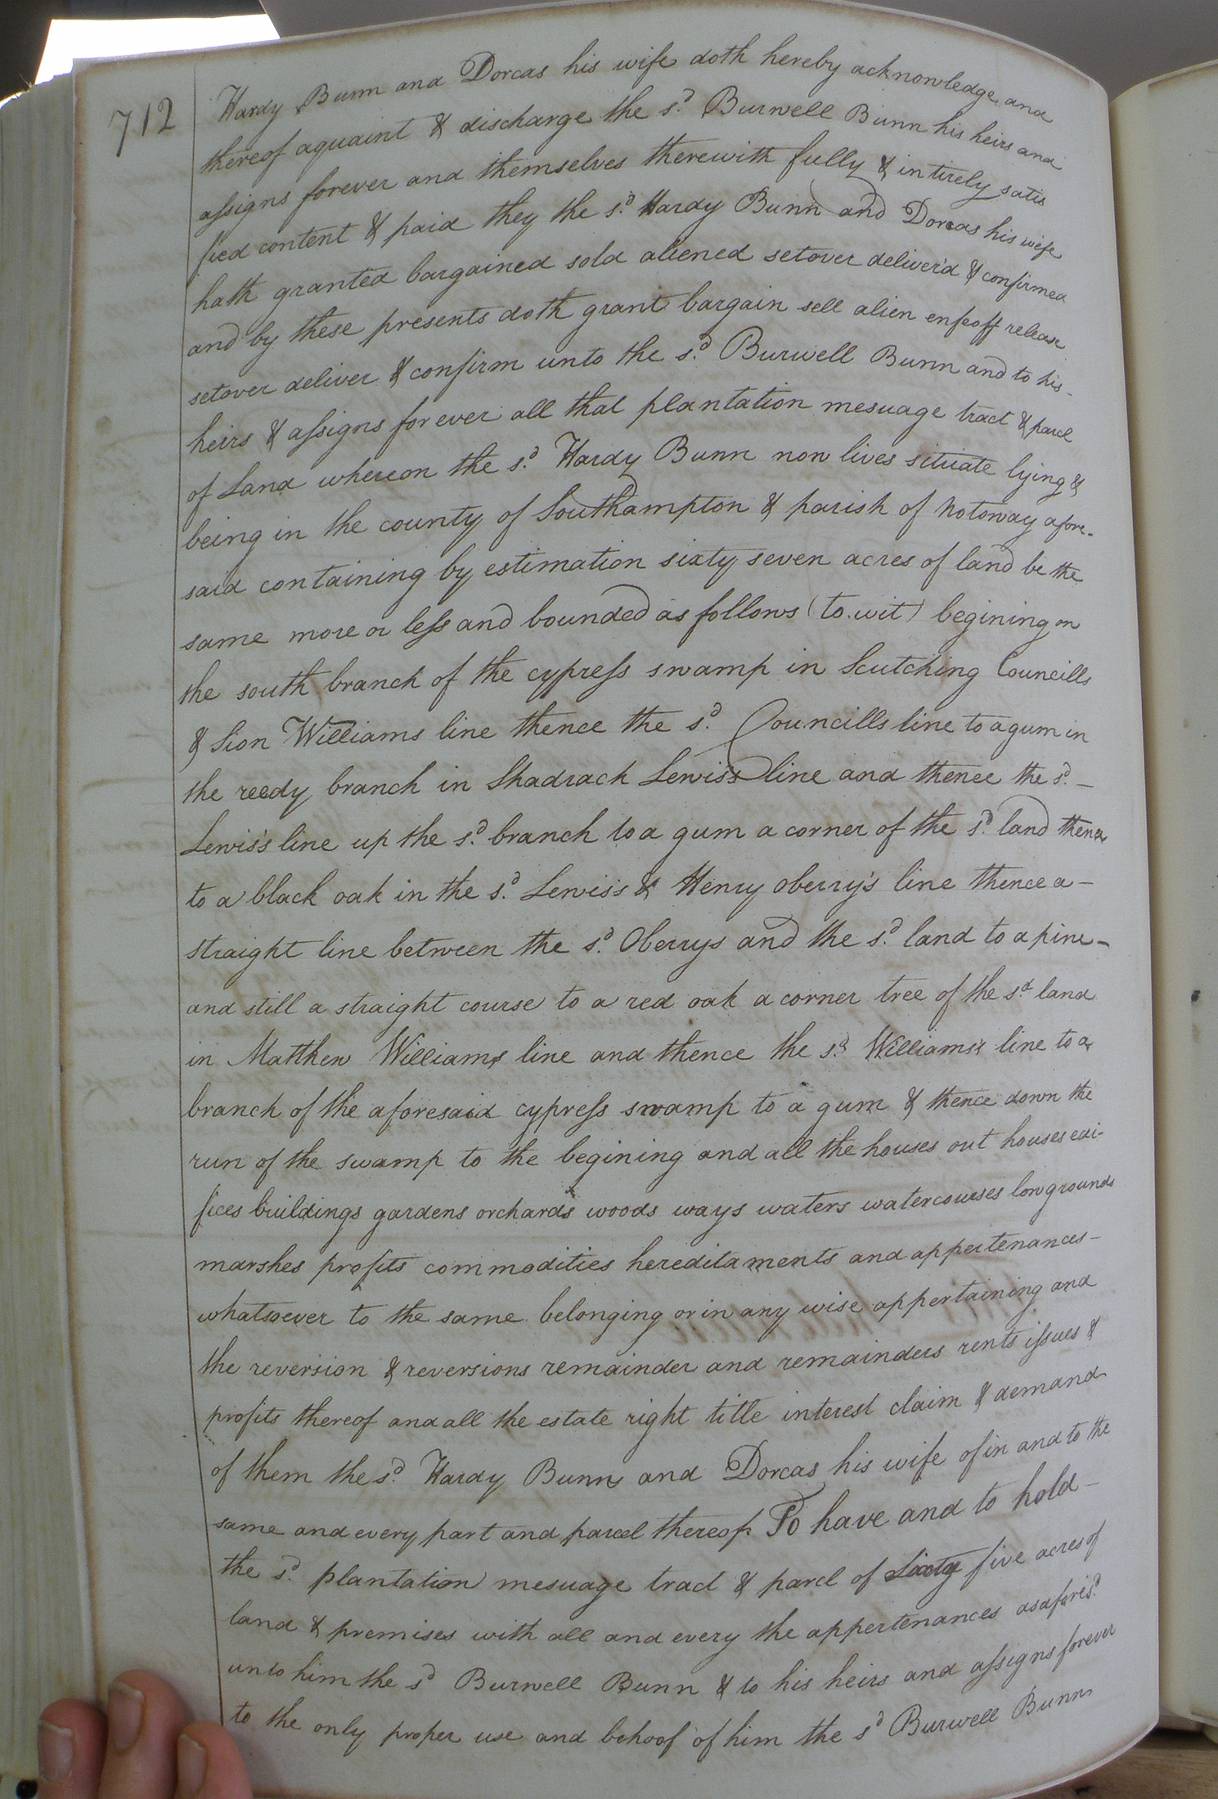 712
Hardy Bunn and Dorcas his wife doth hereby acknowledge and
thereof aquaint & discharge the sd. Burwell Bunn his heirs and
assigns forever and themselves therewith fully & intirely satis
fied content & paid they the sd. Hardy Bunn and Dorcas his wife
hath granted bargained sold aliened setover deliver'd & confirmed
and by these presents doth grant bargain sell alien enfeoff release
setover deliver & confirm unto the sd. Burwell Bunn and to his
heirs & assigns forever all that plantation mesuage tract & parcel
of Land whereon the sd. Hardy Bunn now lives situate lying &
being in the county of Southampton & parish of Notoway afore-
said containing by estimation sixty seven acres of land be the
same more or less and bounded as follows (to wit) begining on
the south branch of the cypress swamp in Scutching Councills
& Sion Williams line thence the sd. Councills line to a gum in
the reedy branch in Shadrack Lewis's line and thence the sd. -
Lewis's line up the sd. branch to a gum a corner of the sd. land thence
to a black oak in the sd. Lewis's & Henry Oberry's line thence a -
straight line between the sd. Oberrys and the sd. land to a pine -
and still a straight course to a red oak a corner tree of the sd. land
in Matthew Williams line and thence the sd. Williams's line to a
branch of the aforesaid cypress swamp to a gum & thence down the
run of the swamp to the begining and all the houses out houses edi-
fices buildings gardens orchards woods ways waters watercourses lowgrounds
marshes profits commodities hereditaments and appertenances -
whatsoever to the same belonging or in any wise appertaining and
the reversion & reversions remainder and remainders rents issues &
profits thereof and all the estate right title interest claim & demand
of them the sd. Hardy Bunn and Dorcas his wife of in and to the
same and every part and parcel thereof To have and to hold -
the sd. plantation mesuage tract & parcel of Sixty five acres of
land & premises with all and every the appertenances as aforisd.
unto him the sd Burwell Bunn & to his heirs and assigns forever
to the only proper use and behoof of him the sd Burwell Bunn